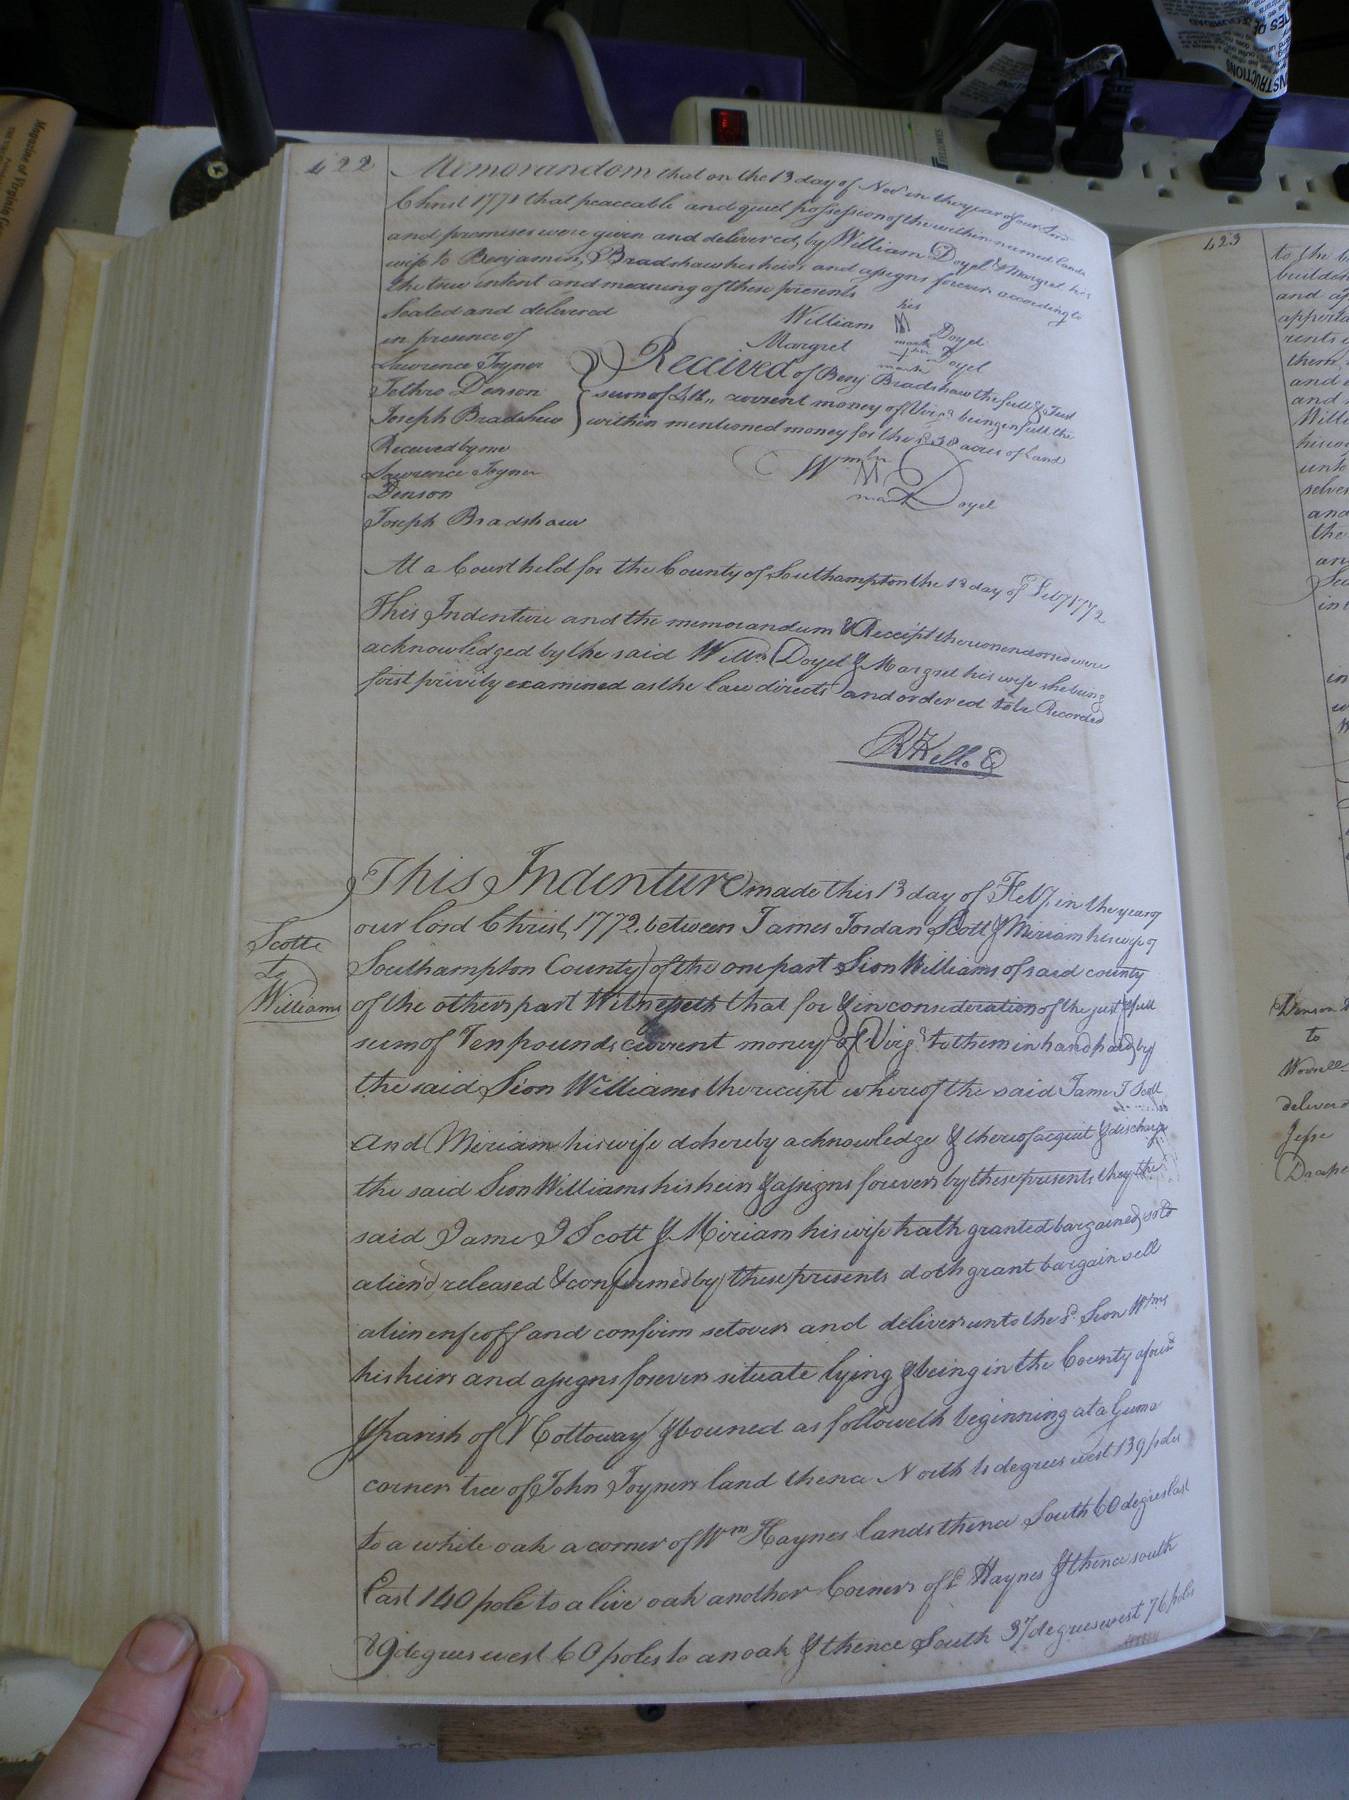 422
Memorandom that on the 13 day of Novr in the year of our Lord
Christ 1771 that peaceable and quiet possession of the within named lands
and premises were given and delivered, by William Doyel & Margret his
wife to Benjamin, Bradshaw his heirs and assigns forever according to
the true intent and meaning of these presents
Sealed and delivered
in presence of
his
William M Doyel
mark
Margret her Doyel
mark
Lawrence Joyner
Jethro Denson
Joseph Bradshaw
Received of Benj Bradshaw the full & Just
sum of current money of Virga being in full the
within mentioned money for the 238 acres of Land
Received by me
Lawrence Joyner
Denson
Joseph Bradshaw
Wm his
M
mark Doyel
At a Court held for the County of Southampton the 13 day of Feby 1772
This Indenture and the memorandum & Receipt thereon endorsed were
acknowledged by the said Willm Doyel & Margret his wife she being
first privily examined as the law directs and ordered to be Recorded
R Kello
This Indenture made this 13 day of Feby, in the year of
our lord Christ, 1772, between James Jordan Scott & Miriam his wife of
Scott
to
Williams
Southampton County of the one part Sion Williams of said county
of the other part Witnesseth that for & in consideration of the just & full
sum of Ten pounds current money of Virga to them in hand paid by
the said Sion Williams the receipt whereof the said Jame J Scott
and Miriam his wife do hereby acknowledge & thereof acquit & discharge
the said Sion Williams his heirs & assigns forever by these presents they the
said Jame J Scott & Miriam his wife hath granted bargained sold
alien'd released & confirmed by these presents doth grant bargain sell
alien enfeoff and confirm setover and deliver unto the sd Sion Wms
his heirs and assigns forever situate lying & being in the County aforesd
& parish of Nottoway & bouned as followeth beginning at a Gum
corner tree of John Joyners land thence North degrees west 139 poles
to a white oak a corner of Wm Haynes lands thence South 60 degrees East
East 140 pole to a live oak another Corner of sd Haynes & thence south
29 degrees west 60 poles to an oak & thence South 37 degrees west 76 poles
423
to the
and
and
and
the
Denson
to
Worrell
Jesse